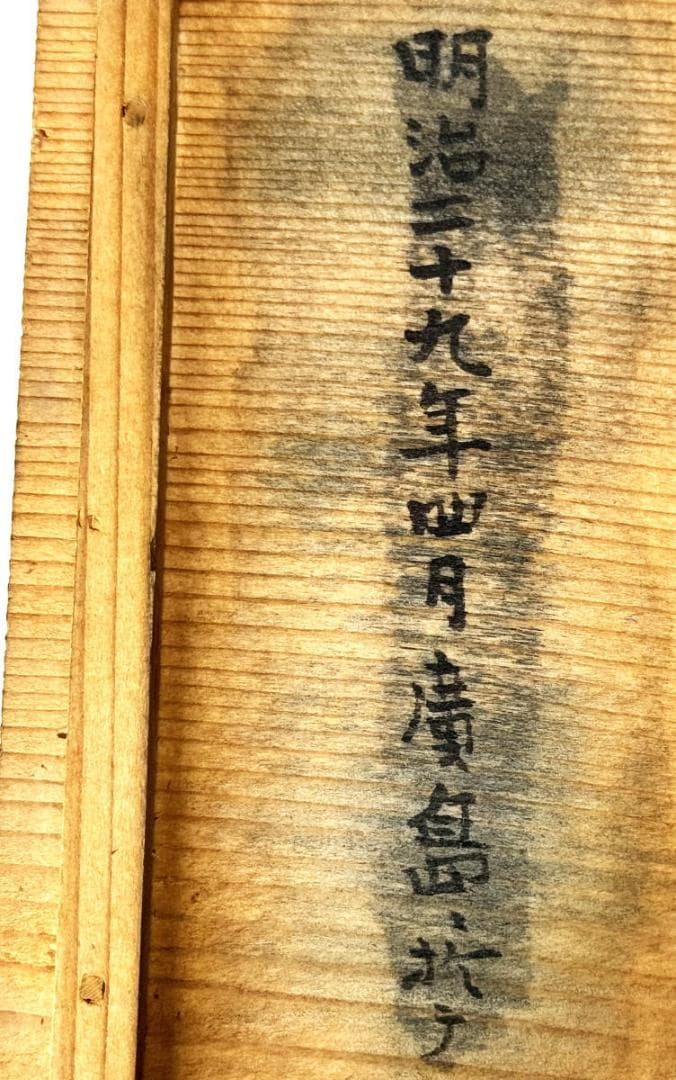 明治二十九年四月廣島ニ於テ